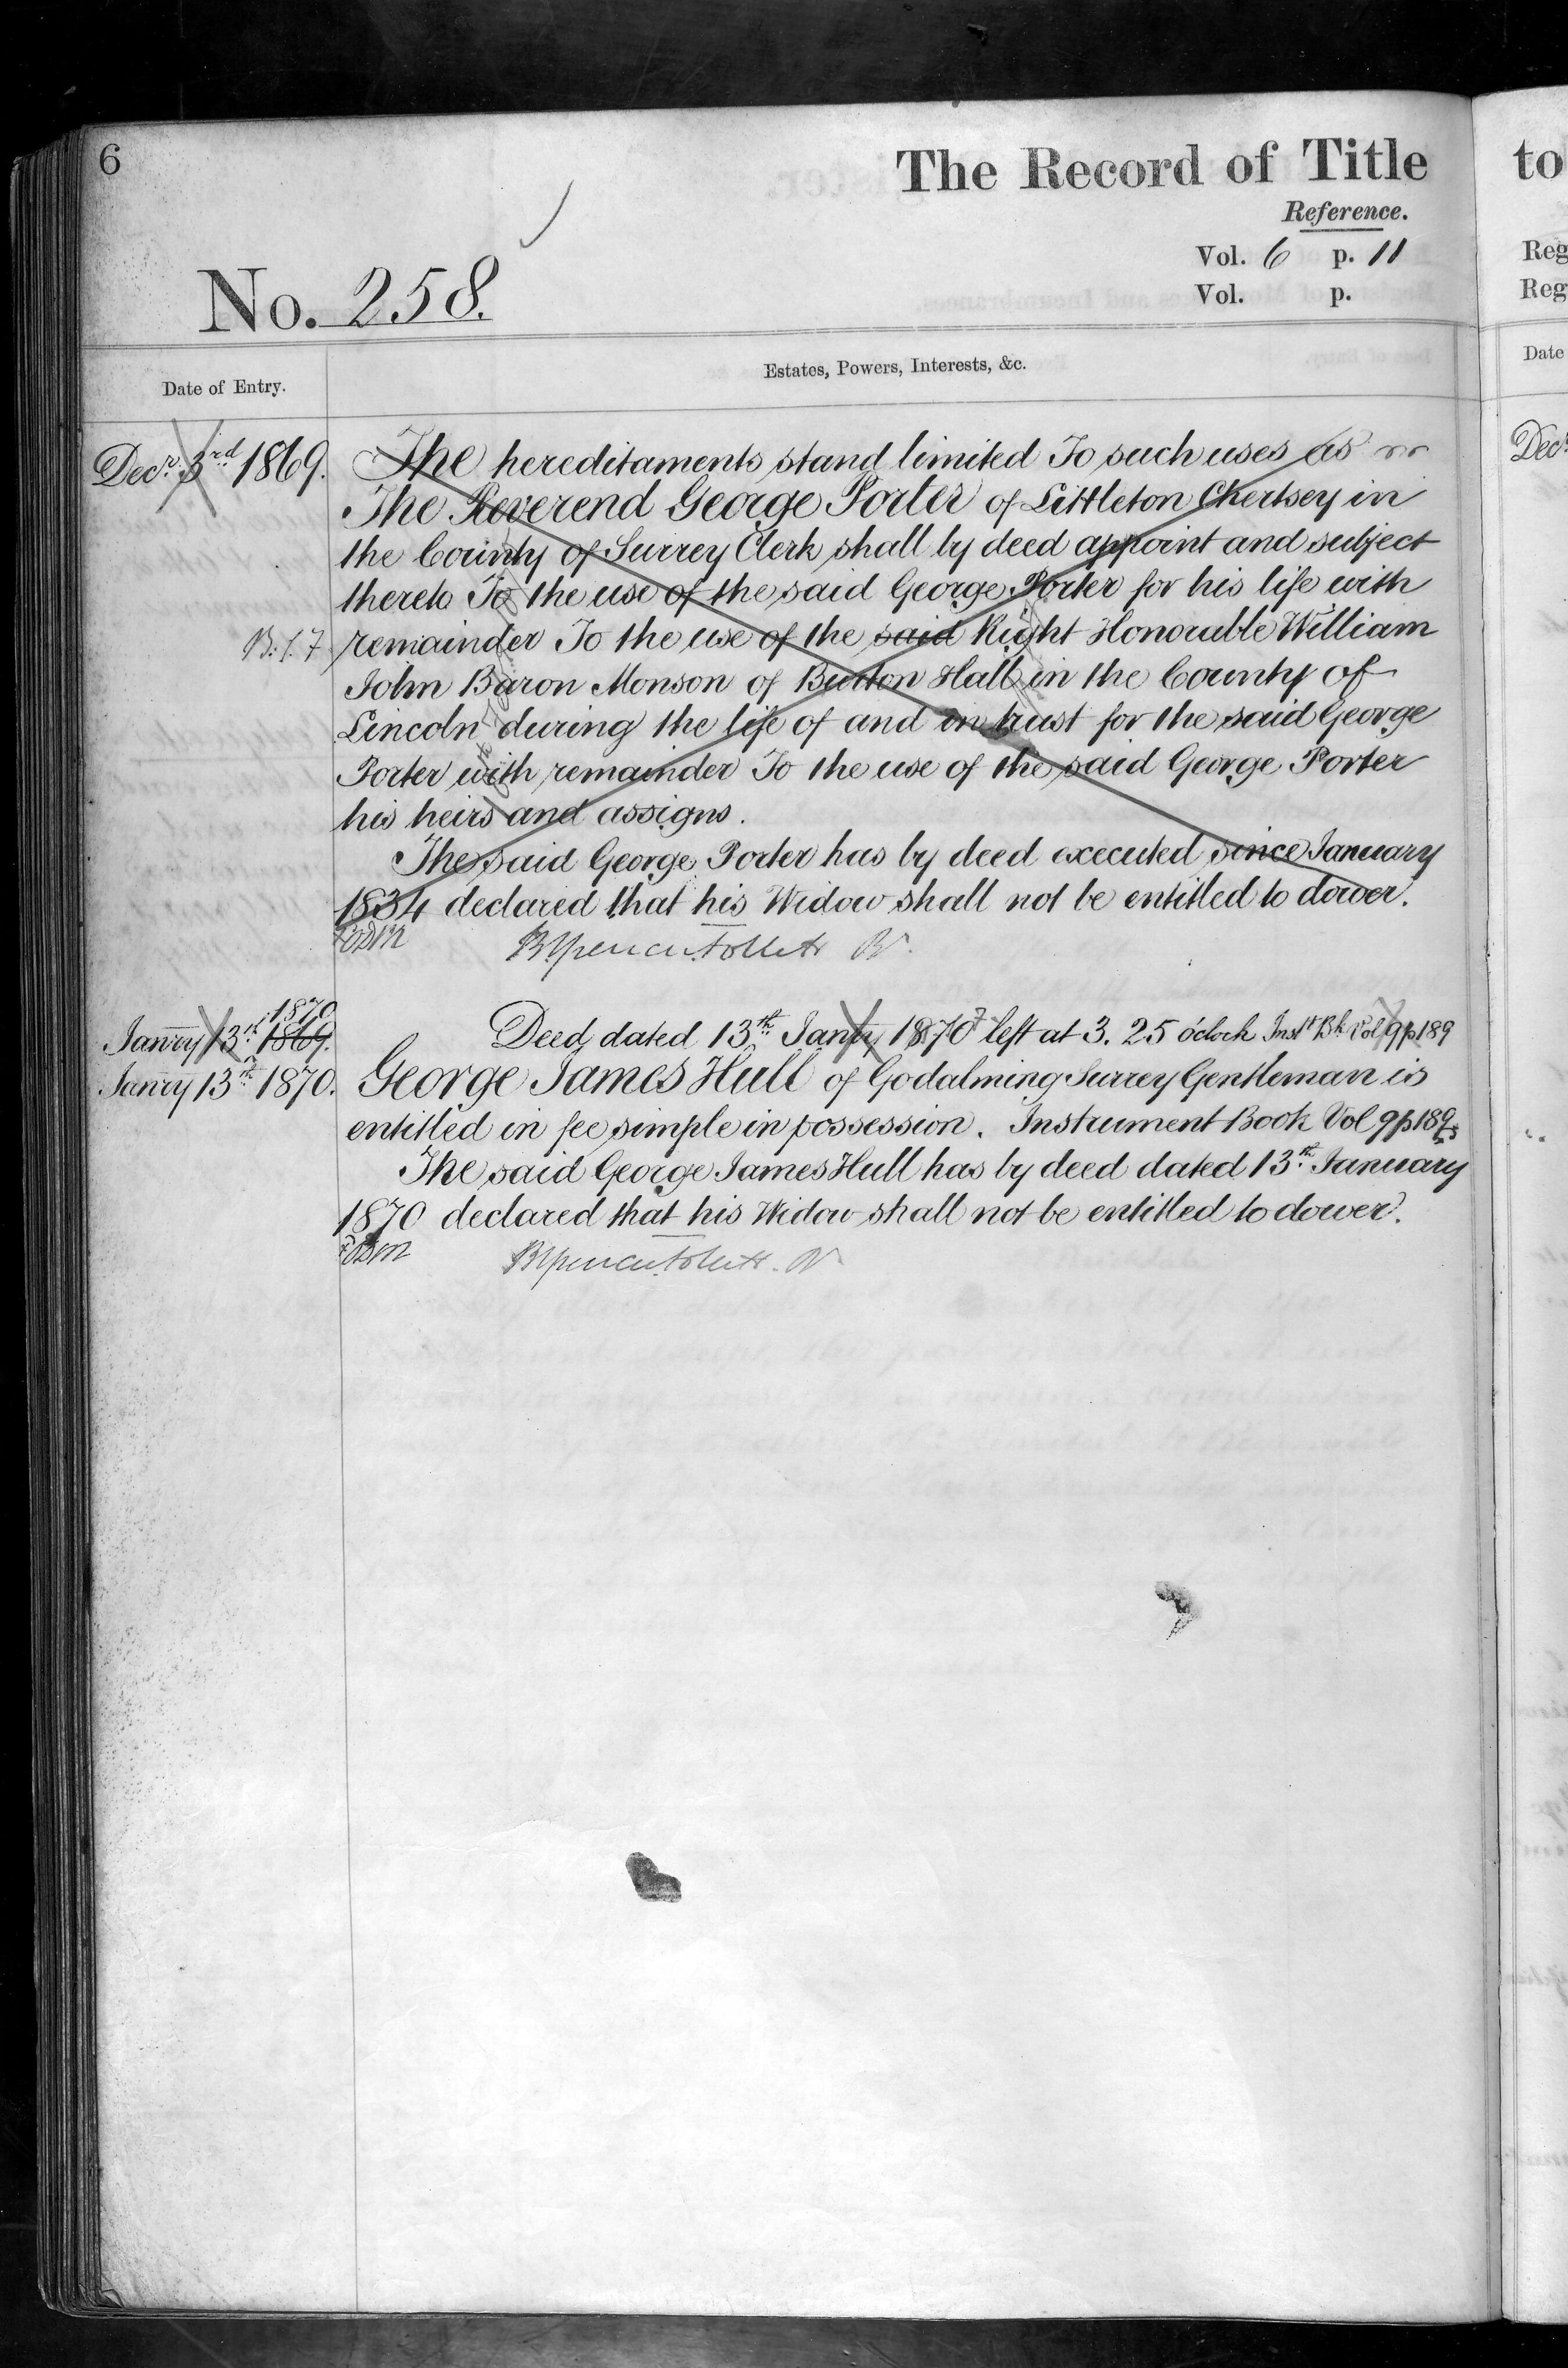 6
The Record of Title
Reference.
Vol. 6 p. 11
Vol. p.
No. 258.
Date of Entry.
Estates, Powers, Interests, &c.
Decr. 3rd 1869. The hereditaments stand limited To such uses as
The Reverend George Porter of Littleton Chertsey in
the County of Surrey Clerk shall by deed appoint and subject
thereto To the use of the said George Porter for his life with
B.1.7 remainder To the use of the said Right Honorable William
John Baron Monson of Burton Hall in the County of
Lincoln during the life of and in trust for the said George
Porter with remainder To the use of the said George Porter
his heirs and assigns.
The said George Porter has by deed executed since January
1834 declared that his Widow shall not be entitled to dower.
1870
Janry 13th 1869. Deed dated 13th Janry 1870 left at 3.25 o'clock Inst Bk Vol 9 p 189
Janry 13th 1870. George James Hull of Godalming Surrey Gentleman is
entitled in fee simple in possession. Instrument Book Vol 9 p 189
The said George James Hull has by deed dated 13th January
1870 declared that his Widow shall not be entitled to dower.
to
Reg
Reg
Date
Decr